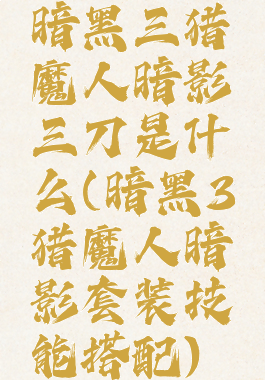 暗黑三猎
魔人暗影
三刀是什
么(暗黑3
猎魔人暗
影套装技
能搭配)